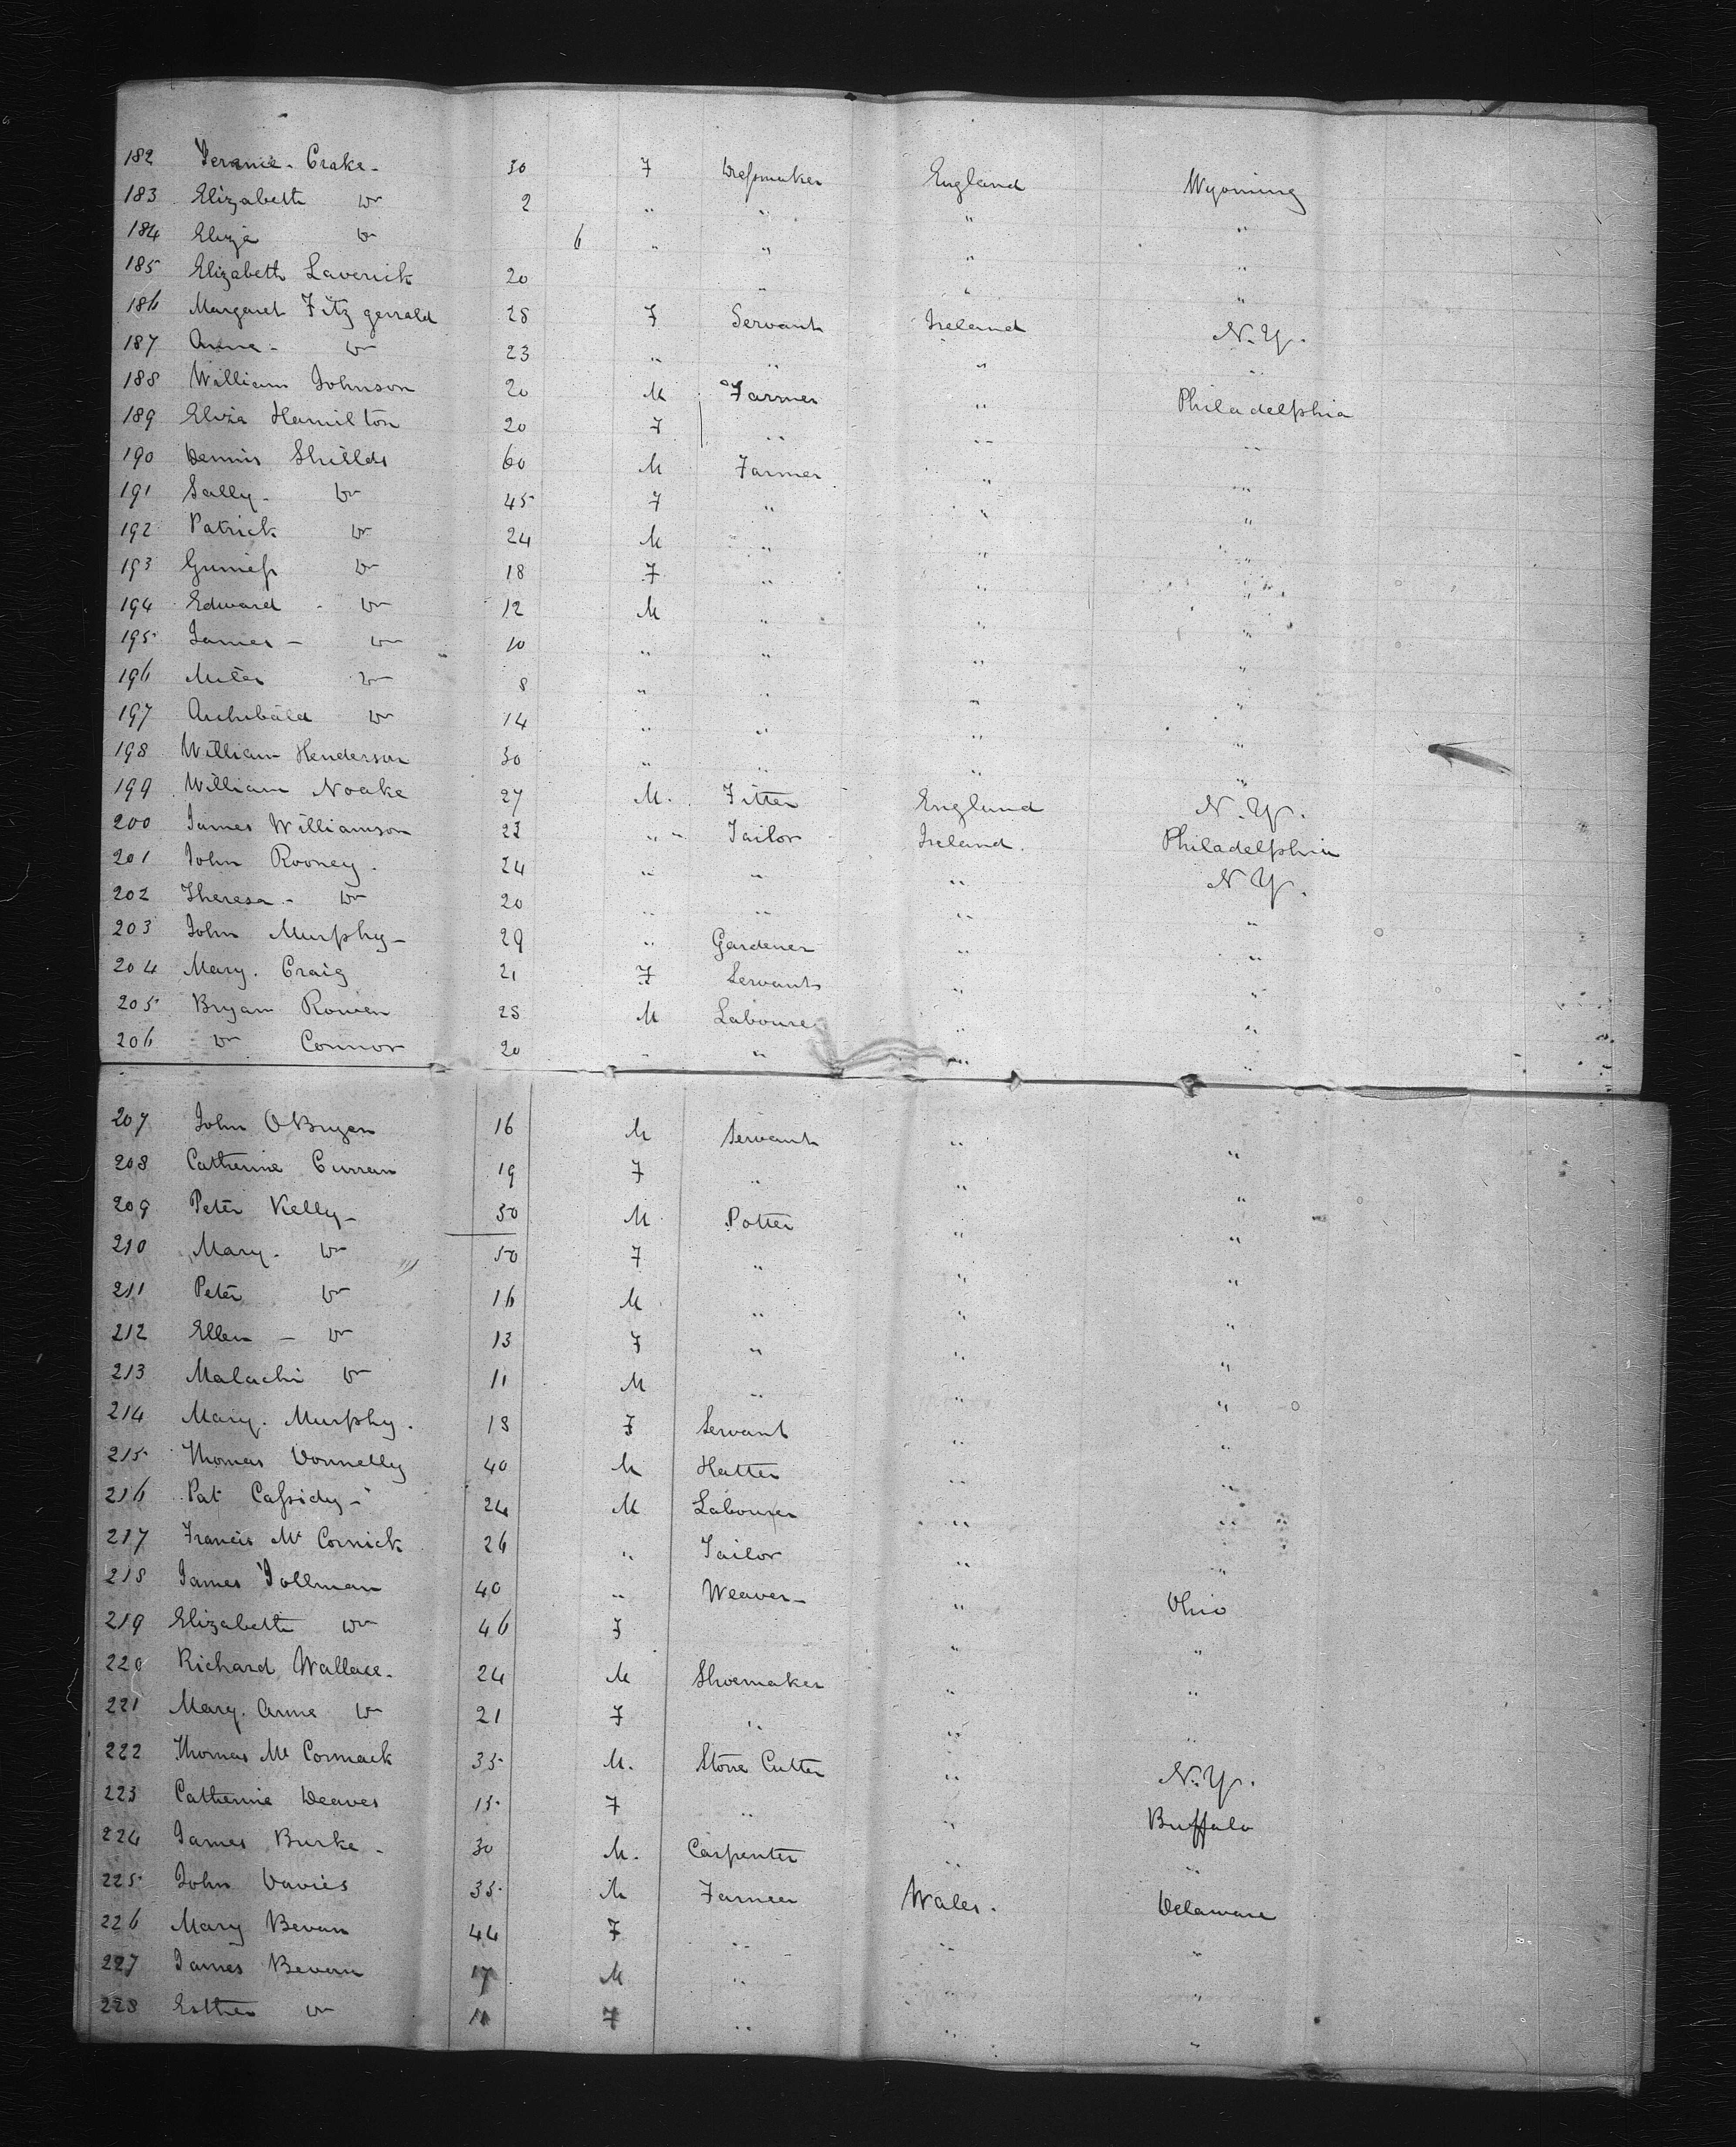 182 Crake - 30 F Dressmaker England Wyoming
183 Elizabeth Do 2 " " " "
184 Eliza Do 6 " " " "
185 Elizabeth Laverick 20 " " "
186 Margaret Fitzgerrald 28 F Servant Ireland N.Y.
187 Anna - Do 23 " " " "
188 William Johnson 20 M Farmer " Philadelphia
189 Eliza Hamilton 20 F " " "
190 Dennis Shields 60 M Farmer " "
191 Sally - Do 45 F " " "
192 Patrick Do 24 M " " "
193 Do 18 F " " "
194 Edward - Do 12 M " " "
195 James - Do 10 " " " "
196 Do 8 " " " "
197 Archibald Do 14 " " " "
198 William Henderson 30 " " " "
199 William Noake 27 M. Fitter England N.Y.
200 James Williamson 23 " Tailor Ireland. Philadelphia
201 John Rooney. 24 " " " N.Y.
202 Theresa - Do 20 " " " "
203 John Murphy - 29 " Gardener " "
204 Mary. Craig 21 F Servant " "
205 Bryan Rowen 28 M Labourer " "
206 Do Connor 20 " " " "
207 John OBryen 16 M Servant " "
208 Catherine Curran 19 F " " "
209 Peter Kelly - 50 M Potter " "
210 Mary. Do 50 F " " "
211 Peter Do 16 M " " "
212 Ellen - Do 13 F " " "
213 Malachi Do 11 M " " "
214 Mary. Murphy. 18 F Servant " "
215 Thomas Donnelly 40 M Hatter " "
216 Pat Cassidy - 24 M Labourer " "
217 Francis Mc Cormick 26 " Tailor " "
218 James Tollman 40 " Weaver - " Ohio
219 Elizabeth Do 46 F " "
220 Richard Wallace. 24 M Shoemaker " "
221 Mary. Anne Do 21 F " " "
222 Thomas Mc Cormack 35 M. Stone Cutter " N.Y.
223 Catherine Deaves 15 F " " Buffalo
224 James Burke - 30 M. Carpenter " "
225 John Davies 35 M Farmer Wales. Delaware
226 Mary Bevan 44 F " " "
227 James Bevan 17 M " " "
228 Esther Do 11 F " " "